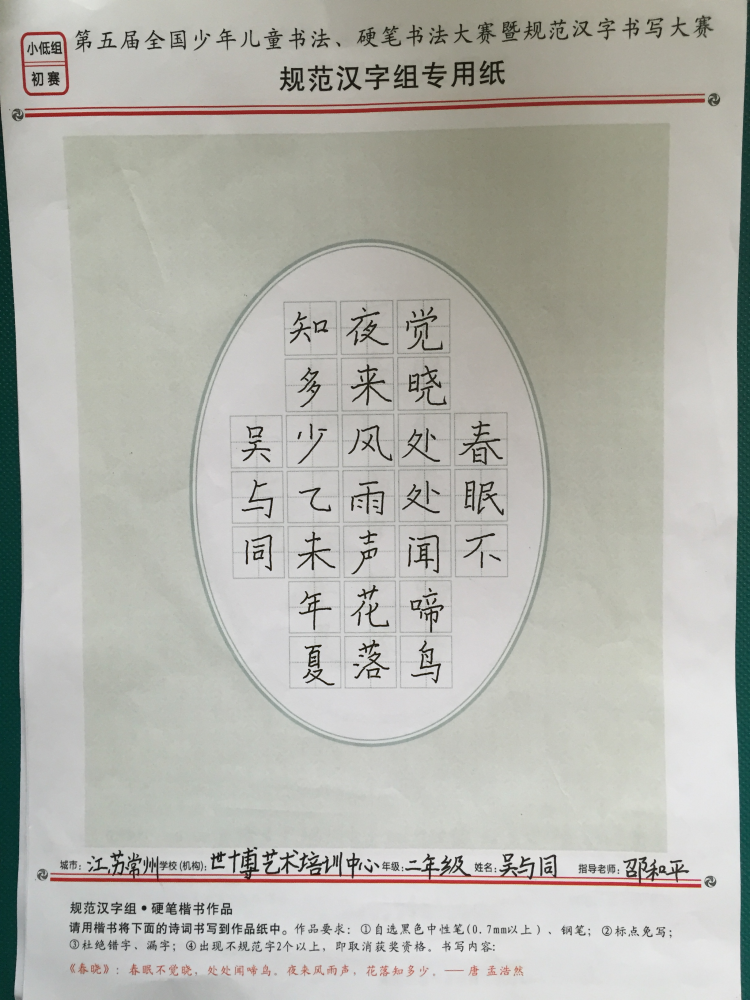 小低组
初赛
第五届全国少年儿童书法、硬笔书法大赛暨规范汉字书写大赛
规范汉字组专用纸
春眠不
觉晓处处闻啼鸟
夜来风雨声花落
知多少乙未年夏
吴与同
城市：江苏常州 学校(机构)：世博艺术培训中心 年级：二年级 姓名：吴与同 指导老师：邵和平
规范汉字组•硬笔楷书作品
请用楷书将下面的诗词书写到作品纸中。作品要求：①自选黑色中性笔(0.7mm以上)、钢笔；②标点免写；
③杜绝错字、漏字；④出现不规范字2个以上，即取消获奖资格。书写内容：
《春晓》：春眠不觉晓，处处闻啼鸟。夜来风雨声，花落知多少。——唐 孟浩然